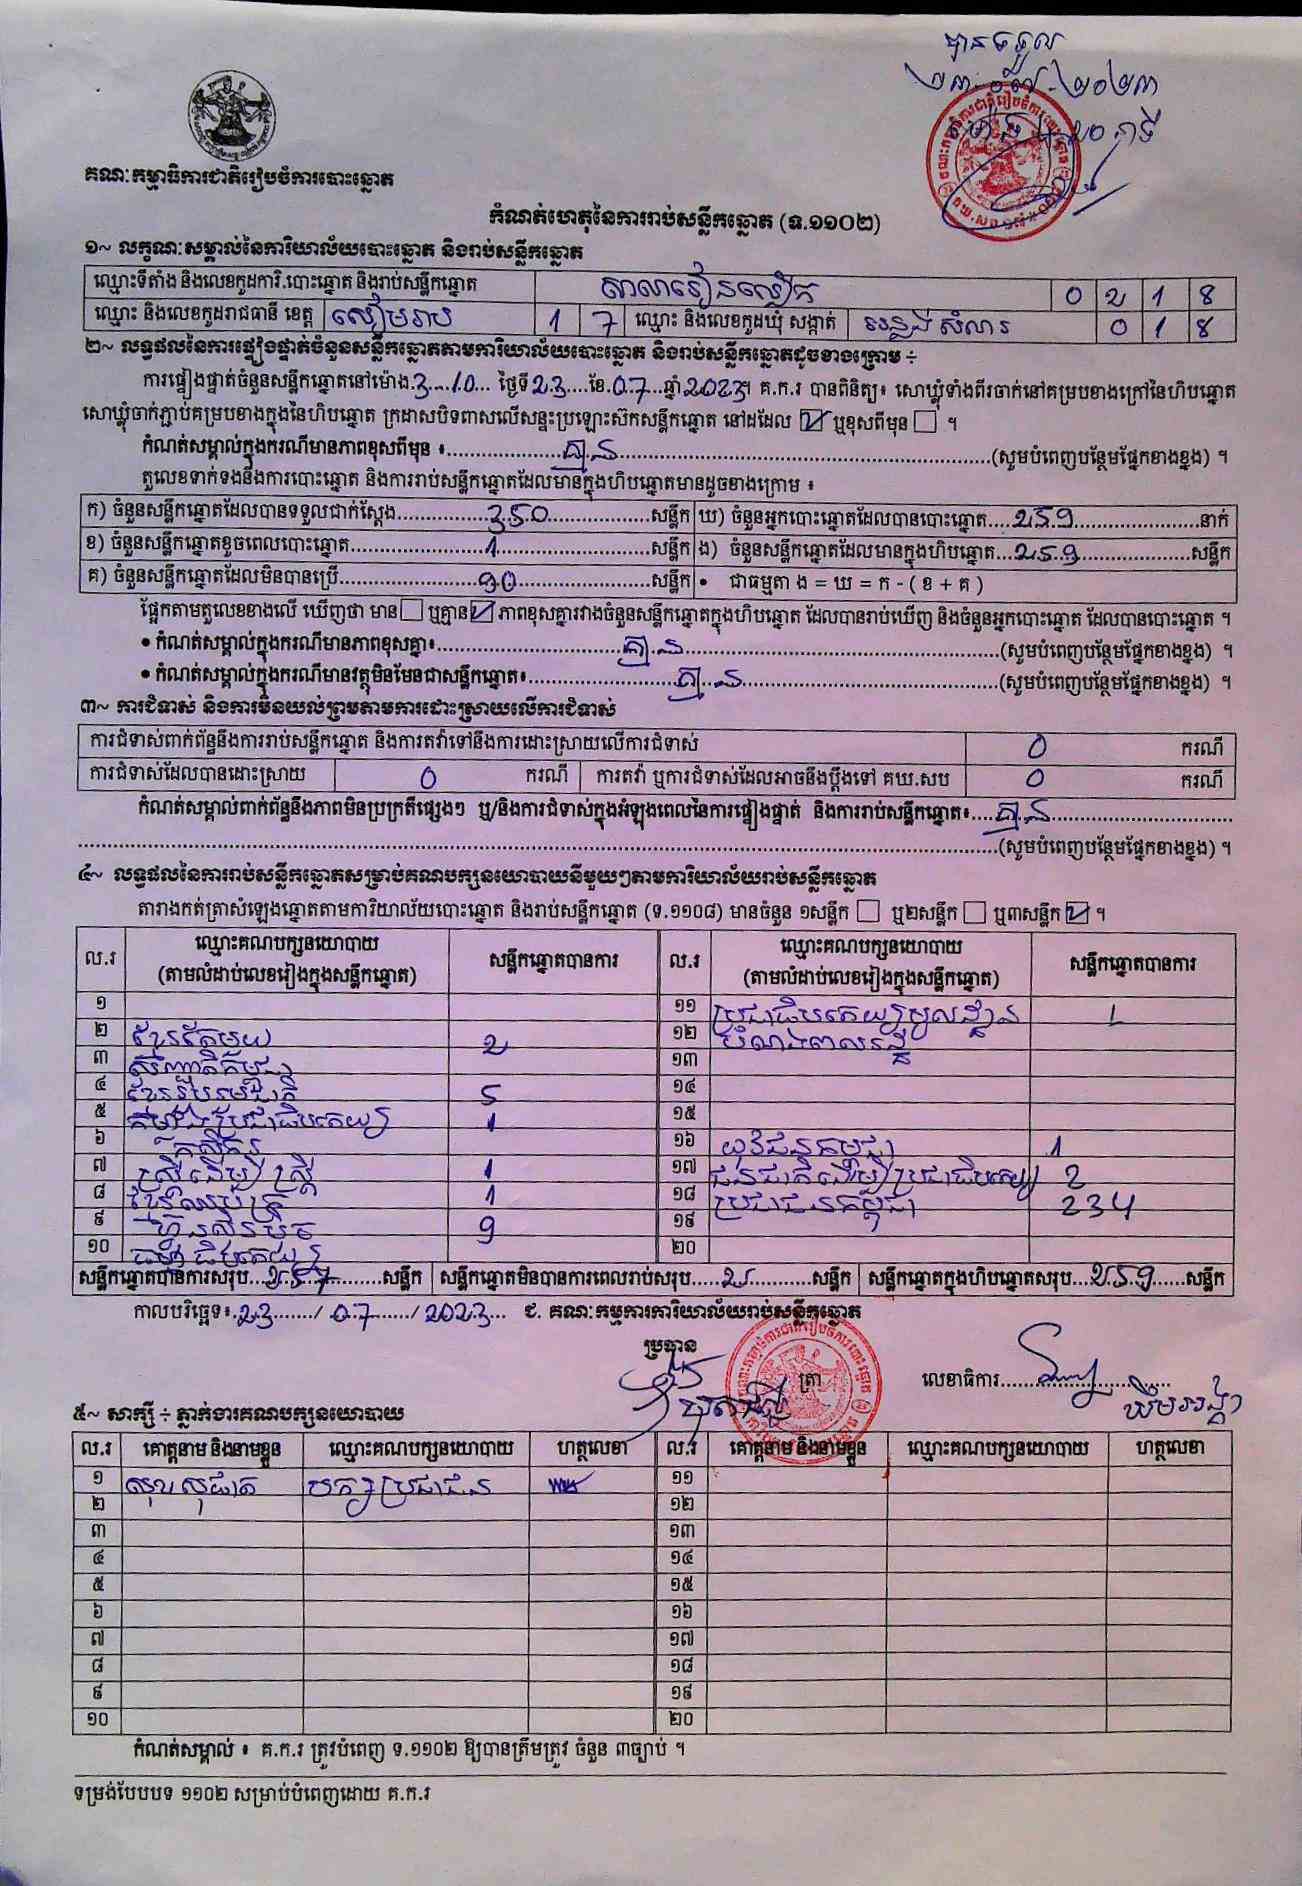 បានទទួល
២៣-០៧-២០២៣
គណៈកម្មាធិការជាតិរៀបចំការបោះឆ្នោត
កំណត់ហេតុនៃការរាប់សន្លឹកឆ្នោត (ទ.១១០២)
១~ លក្ខណៈសម្គាល់នៃការិយាល័យបោះឆ្នោត និងរាប់សន្លឹកឆ្នោត
ឈ្មោះទីតាំង និងលេខកូដការិ.បោះឆ្នោត និងរាប់សន្លឹកឆ្នោត សាលារៀន 0 2 1 8
ឈ្មោះ និងលេខកូដរាជធានី ខេត្ត សៀមរាប 1 7 ឈ្មោះ និងលេខកូដឃុំ សង្កាត់ អន្លង់សំណរ 0 1 8
២~ លទ្ធផលនៃការផ្ទៀងផ្ទាត់ចំនួនសន្លឹកឆ្នោតតាមការិយាល័យបោះឆ្នោត និងរាប់សន្លឹកឆ្នោតដូចខាងក្រោម ÷
ការផ្ទៀងផ្ទាត់ចំនួនសន្លឹកឆ្នោតនៅម៉ោង.3...10... ថ្ងៃទី.23....ខែ.07...ឆ្នាំ.2023។ គ.ក.រ បានពិនិត្យ៖ សោឃ្លុំទាំងពីរចាក់នៅគម្របខាងក្រៅនៃហិបឆ្នោត
សោឃ្លុំចាក់ភ្ជាប់គម្របខាងក្នុងនៃហិបឆ្នោត ក្រដាសបិទពាសលើសន្ទះប្រឡោះស៊កសន្លឹកឆ្នោត នៅដដែល ☑ ឬខុសពីមុន ☐ ។
កំណត់សម្គាល់ក្នុងករណីមានភាពខុសពីមុន ៖....................គ្មាន....................(សូមបំពេញបន្ថែមផ្នែកខាងខ្នង) ។
តួលេខទាក់ទងនឹងការបោះឆ្នោត និងការរាប់សន្លឹកឆ្នោតដែលមានក្នុងហិបឆ្នោតមានដូចខាងក្រោម ៖
ក) ចំនួនសន្លឹកឆ្នោតដែលបានទទួលជាក់ស្តែង................350................សន្លឹក ឃ) ចំនួនអ្នកបោះឆ្នោតដែលបានបោះឆ្នោត....259................នាក់
ខ) ចំនួនសន្លឹកឆ្នោតខូចពេលបោះឆ្នោត................1................សន្លឹក ង) ចំនួនសន្លឹកឆ្នោតដែលមានក្នុងហិបឆ្នោត...259................សន្លឹក
គ) ចំនួនសន្លឹកឆ្នោតដែលមិនបានប្រើ................90................សន្លឹក • ជាធម្មតា ង = ឃ = ក - ( ខ + គ )
ផ្អែកតាមតួលេខខាងលើ ឃើញថា មាន ☐ ឬគ្មាន ☑ ភាពខុសគ្នារវាងចំនួនសន្លឹកឆ្នោតក្នុងហិបឆ្នោត ដែលបានរាប់ឃើញ និងចំនួនអ្នកបោះឆ្នោត ដែលបានបោះឆ្នោត ។
• កំណត់សម្គាល់ក្នុងករណីមានភាពខុសគ្នា៖................គ្មាន................(សូមបំពេញបន្ថែមផ្នែកខាងខ្នង) ។
• កំណត់សម្គាល់ក្នុងករណីមានវត្ថុមិនមែនជាសន្លឹកឆ្នោត៖................គ្មាន................(សូមបំពេញបន្ថែមផ្នែកខាងខ្នង) ។
៣~ ការជំទាស់ និងការមិនយល់ព្រមតាមការដោះស្រាយលើការជំទាស់
ការជំទាស់ពាក់ព័ន្ធនឹងការរាប់សន្លឹកឆ្នោត និងការតវ៉ាទៅនឹងការដោះស្រាយលើការជំទាស់ 0 ករណី
ការជំទាស់ដែលបានដោះស្រាយ 0 ករណី ការតវ៉ា ឬការជំទាស់ដែលអាចនឹងប្តឹងទៅ គឃ.សប 0 ករណី
កំណត់សម្គាល់ពាក់ព័ន្ធនឹងភាពមិនប្រក្រតីផ្សេងៗ ឬ/និងការជំទាស់ក្នុងអំឡុងពេលនៃការផ្ទៀងផ្ទាត់ និងការរាប់សន្លឹកឆ្នោត៖....គ្មាន................
................(សូមបំពេញបន្ថែមផ្នែកខាងខ្នង) ។
៤~ លទ្ធផលនៃការរាប់សន្លឹកឆ្នោតសម្រាប់គណបក្សនយោបាយនីមួយៗតាមការិយាល័យរាប់សន្លឹកឆ្នោត
តារាងកត់ត្រាសំឡេងឆ្នោតតាមការិយាល័យបោះឆ្នោត និងរាប់សន្លឹកឆ្នោត (ទ.១១០៨) មានចំនួន ១សន្លឹក ☐ ឬ២សន្លឹក ☐ ឬ៣សន្លឹក ☑ ។
ល.រ ឈ្មោះគណបក្សនយោបាយ (តាមលំដាប់លេខរៀងក្នុងសន្លឹកឆ្នោត) សន្លឹកឆ្នោតបានការ ល.រ ឈ្មោះគណបក្សនយោបាយ (តាមលំដាប់លេខរៀងក្នុងសន្លឹកឆ្នោត) សន្លឹកឆ្នោតបានការ
១ ១១ ប្រជាធិបតេយ្យមូលដ្ឋាន
២ ខ្មែរតែមួយ 2 ១២
៣ សញ្ជាតិកម្ពុជា ១៣
៤ ខ្មែររួបរួមជាតិ 5 ១៤
៥ កម្លាំងប្រជាធិបតេយ្យ 1 ១៥
៦ កសិករ ១៦ យុវជនកម្ពុជា 1
៧ ស្ត្រីដើម្បីស្ត្រី 1 ១៧ ជនជាតិដើមប្រជាធិបតេយ្យ 2
៨ ខ្មែរឈប់ក្រ 1 ១៨ ប្រជាជនកម្ពុជា 234
៩ ហ៊្វុនស៊ិនប៉ិច 9 ១៩
១០ ធម្មាធិបតេយ្យ ២០
សន្លឹកឆ្នោតបានការសរុប...257........សន្លឹក សន្លឹកឆ្នោតមិនបានការពេលរាប់សរុប.....2..........សន្លឹក សន្លឹកឆ្នោតក្នុងហិបឆ្នោតសរុប...259......សន្លឹក
កាលបរិច្ឆេទ៖.23......./ 07......./ 2023... ជ. គណៈកម្មការការិយាល័យរាប់សន្លឹកឆ្នោត
ប្រធាន
ត្រា
លេខាធិការ............................
៥~ សាក្សី ÷ ភ្នាក់ងារគណបក្សនយោបាយ
ល.រ គោត្តនាម និងនាមខ្លួន ឈ្មោះគណបក្សនយោបាយ ហត្ថលេខា ល.រ គោត្តនាម និងនាមខ្លួន ឈ្មោះគណបក្សនយោបាយ ហត្ថលេខា
១ សុខ សុផាត បក្សប្រជាជន ១១
២ ១២
៣ ១៣
៤ ១៤
៥ ១៥
៦ ១៦
៧ ១៧
៨ ១៨
៩ ១៩
១០ ២០
កំណត់សម្គាល់ ៖ គ.ក.រ ត្រូវបំពេញ ទ.១១០២ ឱ្យបានត្រឹមត្រូវ ចំនួន ៣ច្បាប់ ។
ទម្រង់បែបបទ ១១០២ សម្រាប់បំពេញដោយ គ.ក.រ